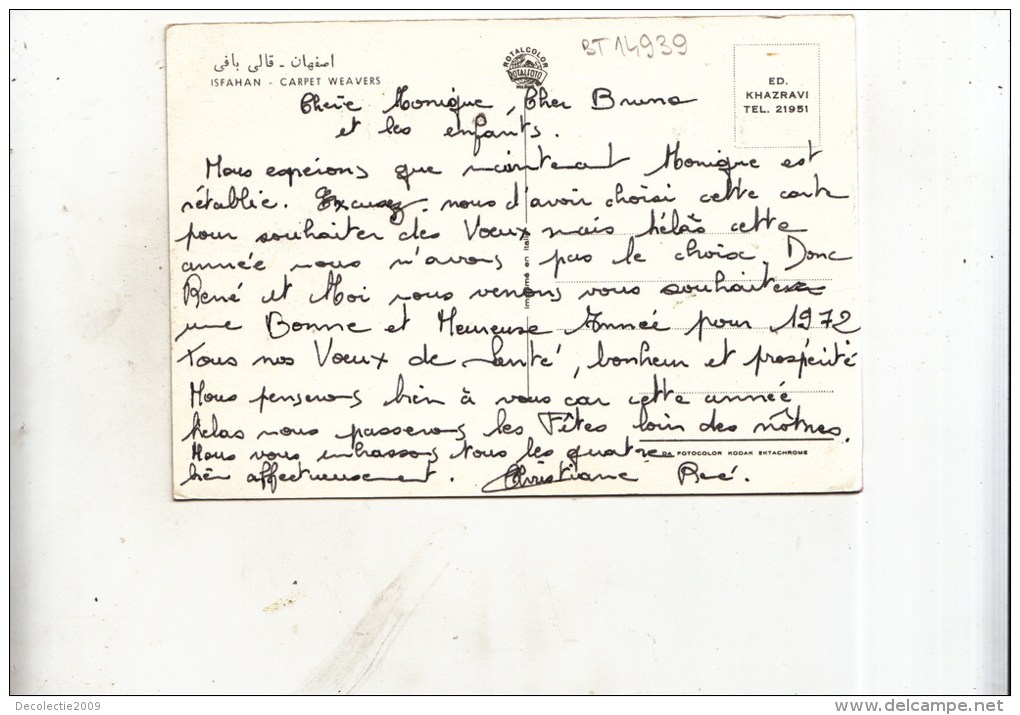 BT 14939
اصفهان - قالی بافی
ISFAHAN - CARPET WEAVERS
ROTALCOLOR
ROTALFOTO
ED.
KHAZRAVI
TEL. 21951
Chère Monique, Cher Bruno
et les enfants.
Nous espérons que maintenant Monique est
rétablie. Excusez-nous d'avoir choisi cette carte
pour souhaiter des Voeux mais hélas cette
année nous n'avons pas le choix. Donc
René et Moi nous venons vous souhaiter
une Bonne et Heureuse Année pour 1972
Tous nos Voeux de Santé, bonheur et prospérité
Nous penserons bien à vous car cette année
hélas nous passerons les Fêtes loin des nôtres.
Nous vous embrassons tous les quatre
bien affectueusement. Christiane René.
Imprimé en Italie
FOTOCOLOR KODAK EKTACHROME
Decolectie2009
delcampe.net